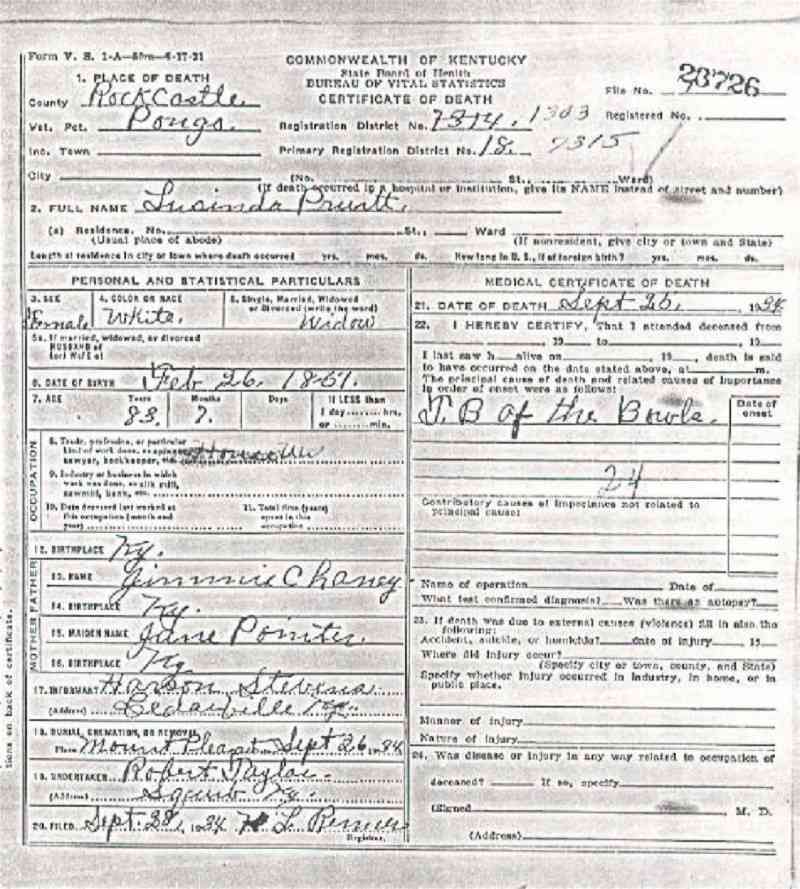 Form V. S. 1-A—50m—6-17-31
COMMONWEALTH OF KENTUCKY
State Board of Health
BUREAU OF VITAL STATISTICS
CERTIFICATE OF DEATH
File No. 23726
Registered No.
1. PLACE OF DEATH
County RockCastle
Vot. Pct. Pongo.
Inc. Town
City
Registration District No. 7314. 1303
Primary Registration District No. 18. 7315
(No. St., Ward)
(If death occurred in a hospital or institution, give its NAME instead of street and number)
2. FULL NAME Lusinda Pruitt.
(a) Residence. No. St., Ward
(Usual place of abode) (If nonresident, give city or town and State)
Length of residence in city or town where death occurred yrs. mos. ds. How long in U. S., if of foreign birth? yrs. mos. ds.
PERSONAL AND STATISTICAL PARTICULARS
3. SEX Female
4. COLOR OR RACE White.
5. Single, Married, Widowed or Divorced (write the word) Widow
5a. If married, widowed, or divorced
HUSBAND of
(or) WIFE of
6. DATE OF BIRTH Feb 26. 1851.
7. AGE Years 83. Months 7. Days If LESS than
1 day hrs.
or min.
OCCUPATION
8. Trade, profession, or particular
kind of work done, as spinner,
sawyer, bookkeeper, etc.
9. Industry or business in which
work was done, as silk mill,
sawmill, bank, etc.
10. Date deceased last worked at
this occupation (month and
year)
11. Total time (years)
spent in this
occupation
12. BIRTHPLACE Ky.
FATHER
13. NAME Jimmie Chaney
14. BIRTHPLACE Ky.
MOTHER
15. MAIDEN NAME Jane Pointer.
16. BIRTHPLACE Ky
17. INFORMANT Stevens
(Address) Ky.
18. BURIAL, CREMATION, OR REMOVAL
Place Mount Sept 26 1934
19. UNDERTAKER Robert Taylor.
(Address) Squib Ky.
20. FILED Sept 28, 1934 L
Registrar.
MEDICAL CERTIFICATE OF DEATH
21. DATE OF DEATH Sept 26, 1934
22. I HEREBY CERTIFY, That I attended deceased from
, 19 to , 19
I last saw h alive on , 19 , death is said
to have occurred on the date stated above, at m.
The principal cause of death and related causes of importance
in order of onset were as follows:
Date of onset
T. B of the Bowls.
24
Contributory causes of importance not related to
principal cause:
Name of operation Date of
What test confirmed diagnosis? Was there an autopsy?
23. If death was due to external causes (violence) fill in also the
following:
Accident, suicide, or homicide? date of injury 19
Where did injury occur?
(Specify city or town, county, and State)
Specify whether injury occurred in industry, in home, or in
public place.
Manner of injury
Nature of injury
24. Was disease or injury in any way related to occupation of
deceased? If so, specify
(Signed M. D.
(Address)
tions on back of certificate.